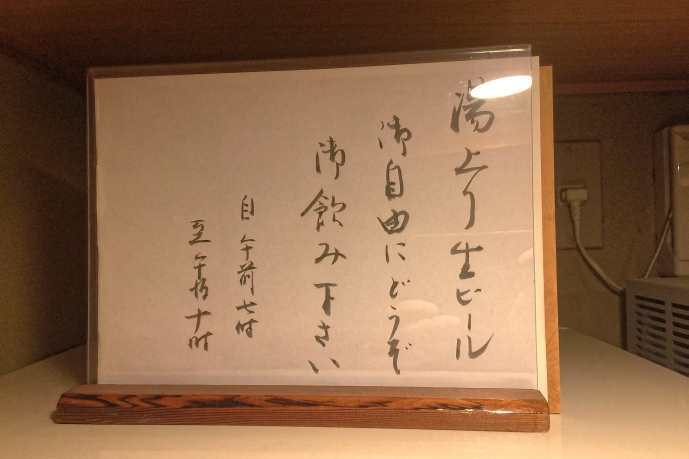 湯上り生ビール
御自由にどうぞ
御飲み下さい
自 午前七時
至 午后十時